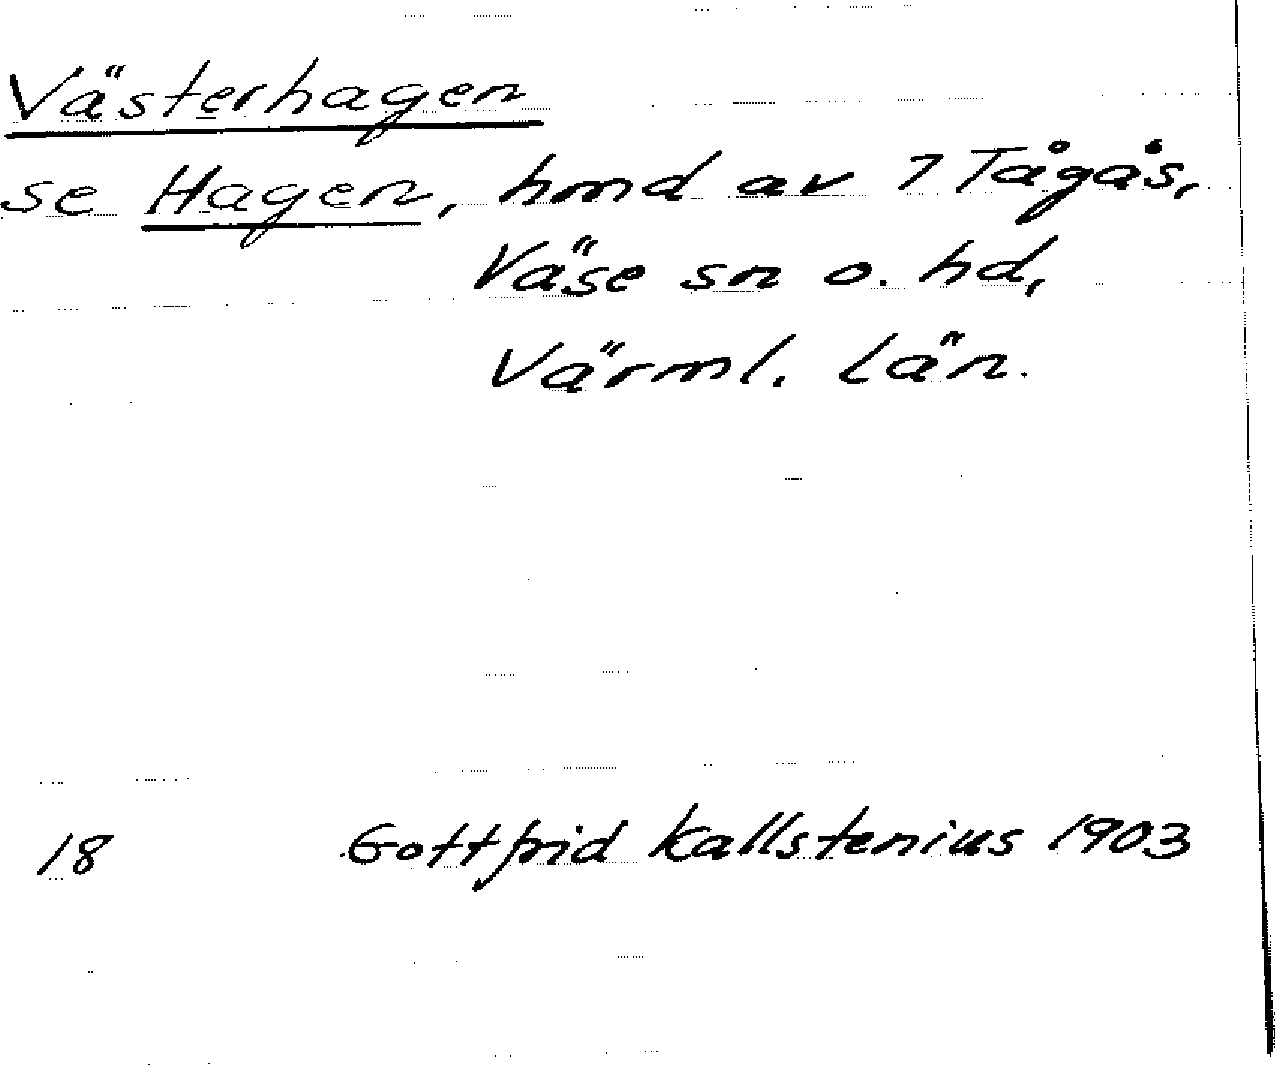 Västerhagen
se Hagen, hmd av 7 Tågås,
Väse sn o. hd,
Värml. län.
18 Gottfrid Kallstenius 1903